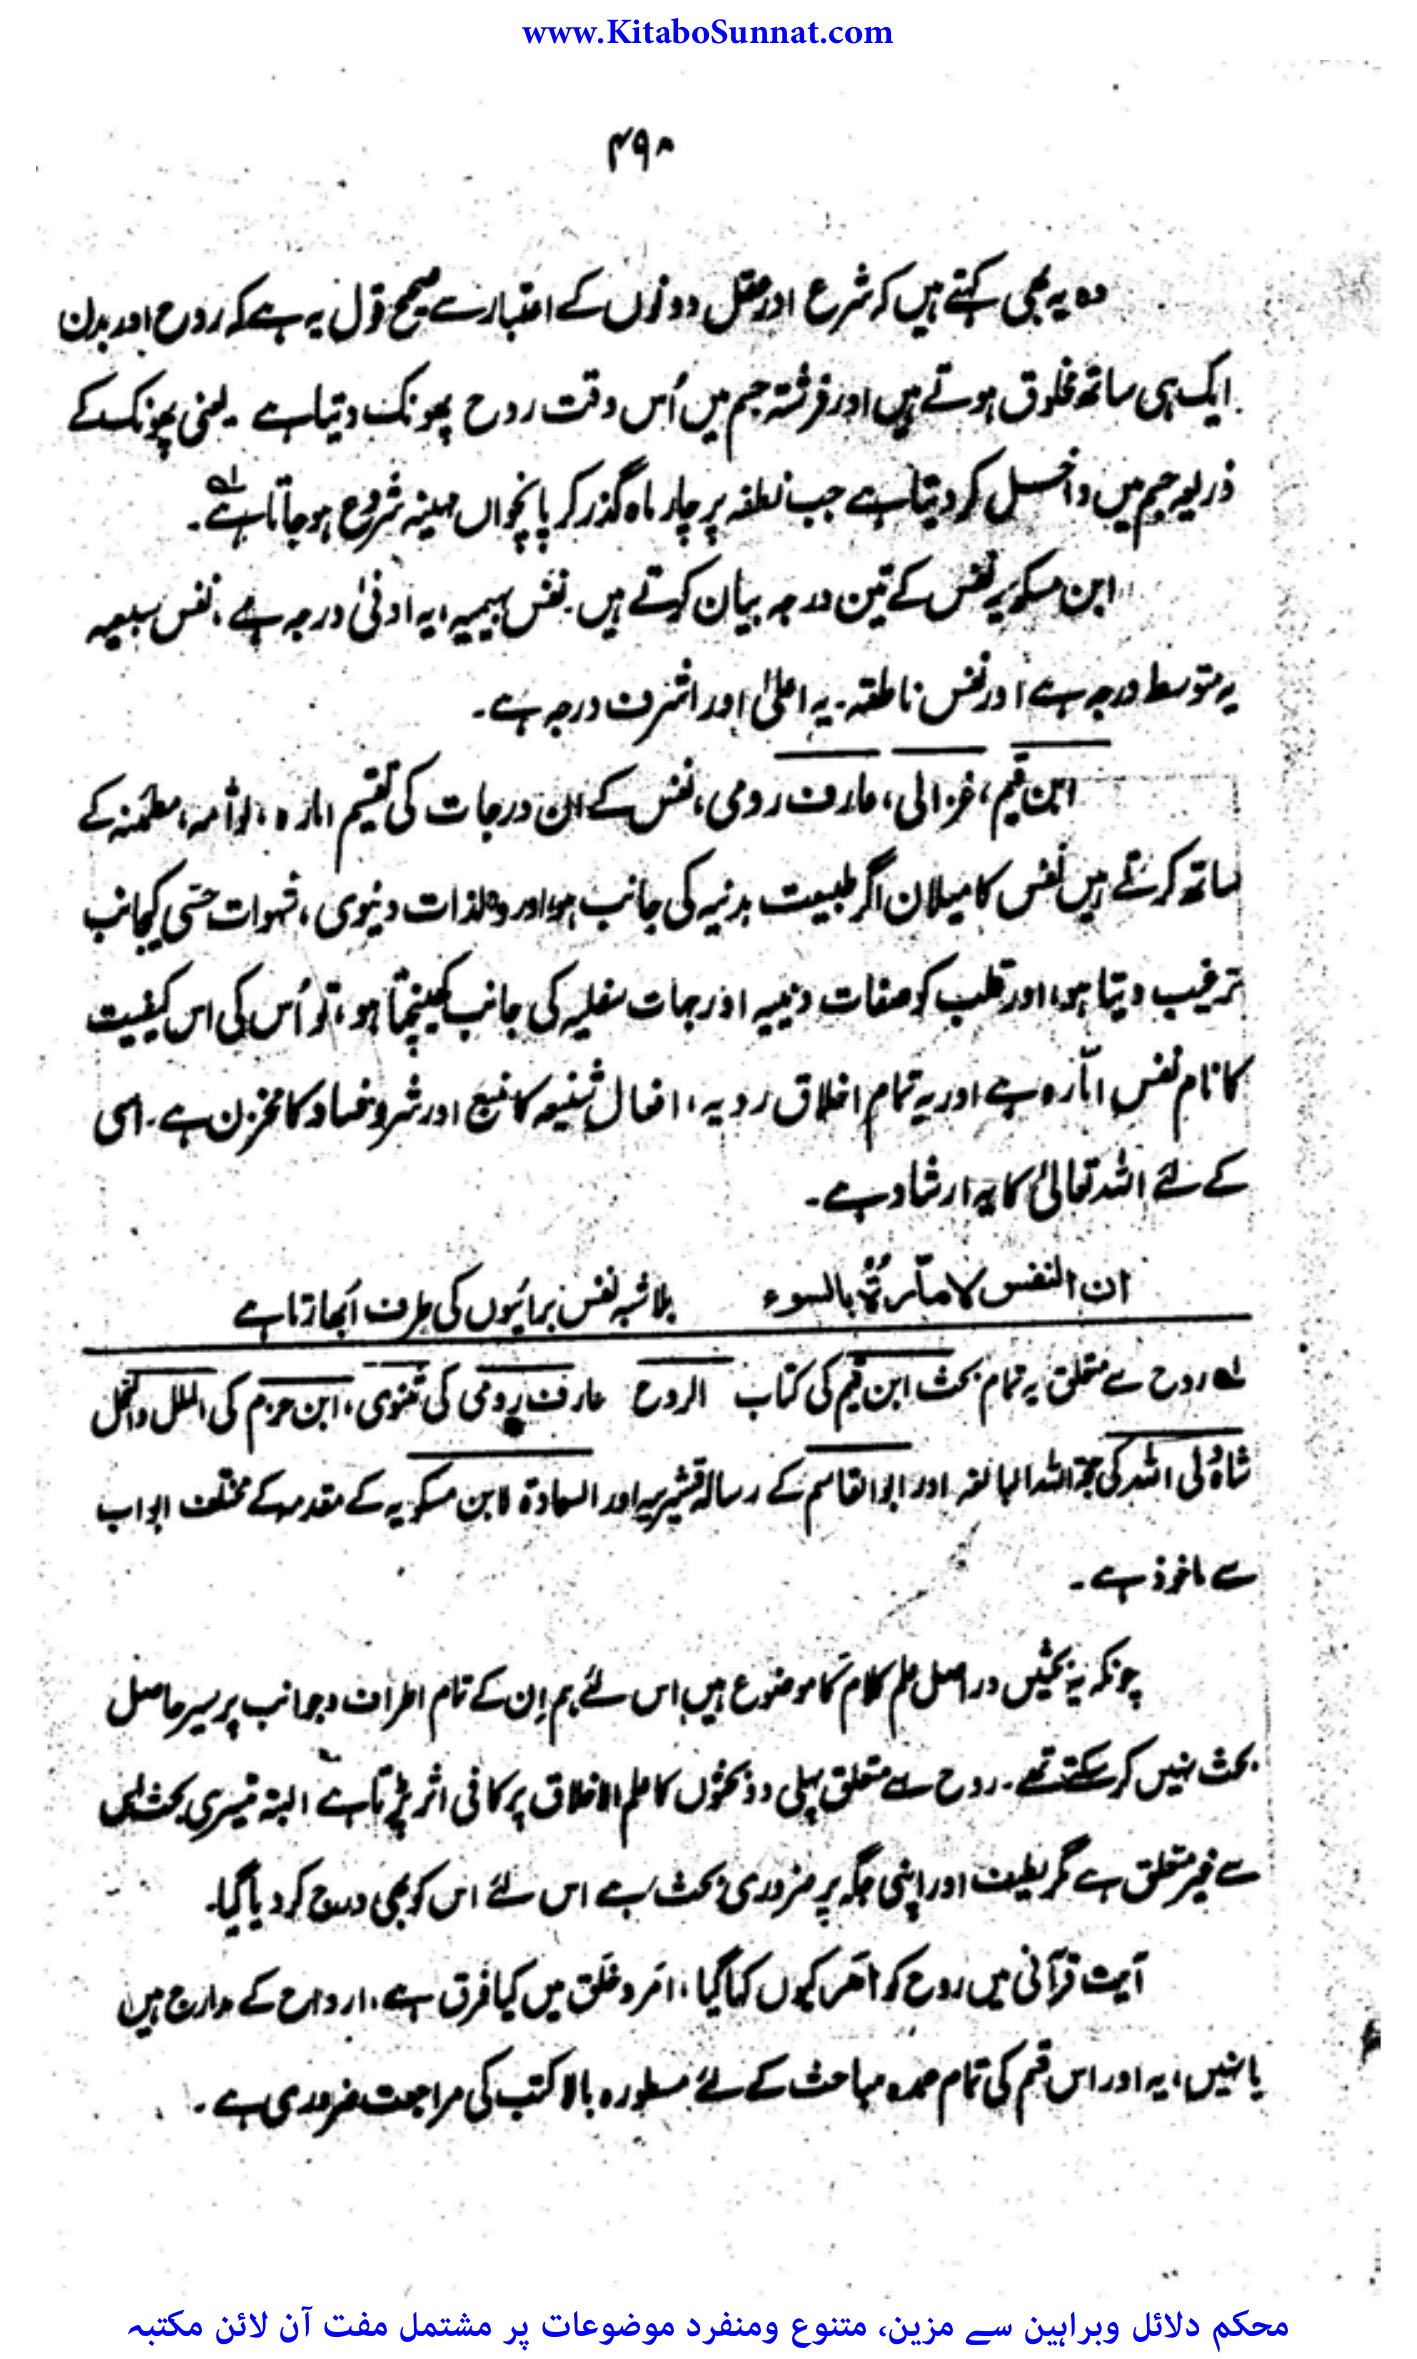 www.KitaboSunnat.com
۴۹۸
وہ یہ بھی کہتے ہیں کہ شرع اور عقل دونوں کے اعتبار سے صحیح قول یہ ہے کہ روح اور بدن
ایک ہی ساتھ مخلوق ہوتے ہیں اور فرشتہ جسم میں اُس وقت روح پھونک دیتا ہے یعنی پھونک کے
ذریعہ جسم میں داخل کر دیتا ہے جب نطفہ پر چار ماہ گذر کر پانچواں مہینہ شروع ہو جاتا ہے۔ لہ
ابن مسکویہ نفس کے تین درجہ بیان کرتے ہیں۔ نفس بہیمیہ، یہ ادنیٰ درجہ ہے، نفس سبعیہ
یہ متوسط درجہ ہے اور نفس ناطقہ۔ یہ اعلیٰ اور اشرف درجہ ہے۔
ابن قیم، غزالی، عارف رومی، نفس کے ان درجات کی تقسیم امارہ، لوامہ، مطمئنہ کے
ساتھ کرتے ہیں نفس کا میلان اگر طبیعت بدنیہ کی جانب ہو اور وہ لذات دنیوی، شہوات حسی کیجانب
ترغیب دیتا ہو، اور قلب کو صفات دنیہ اور جہات سفلیہ کی جانب کھینچتا ہو، تو اُس کی اس کیفیت
کا نام نفس امّارہ ہے اور یہ تمام اخلاق ردیہ، افعال شنیعہ کا منبع اور شر و فساد کا مخزن ہے۔ اسی
کے لئے اللہ تعالیٰ کا یہ ارشاد ہے۔
ان النفس لامّارۃٌ بالسوء بلا شبہ نفس برائیوں کی طرف اُبھارتا ہے
لہ روح سے متعلق یہ تمام بحث ابن قیم کی کتاب الروح عارف رومی کی مثنوی، ابن حزم کی الملل والنحل
شاہ ولی اللہ کی حجۃ اللہ البالغہ اور ابو القاسم کے رسالہ قشیریہ اور السعادۃ لابن مسکویہ کے مقدمہ کے مختلف ابواب
سے ماخوذ ہے۔
چونکہ یہ بحثیں دراصل علم کلام کا موضوع ہیں اس لئے ہم اِن کے تمام اطراف و جوانب پر سیر حاصل
بحث نہیں کر سکتے تھے۔ روح سے متعلق پہلی دو بحثوں کا علم الاخلاق پر کافی اثر پڑتا ہے البتہ تیسری بحث اس
سے غیر متعلق ہے مگر لطیف اور اپنی جگہ پر ضروری بحث ہے اس لئے اس کو بھی درج کر دیا گیا۔
آیت قرآنی میں روح کو امر کیوں کہا گیا، امر و خلق میں کیا فرق ہے، ارواح کے مدارج ہیں
یا نہیں، یہ اور اس قسم کی تمام عمدہ مباحث کے لئے مسطورہ بالا کتب کی مراجعت ضروری ہے۔
محکم دلائل وبراہین سے مزین، متنوع ومنفرد موضوعات پر مشتمل مفت آن لائن مکتبہ